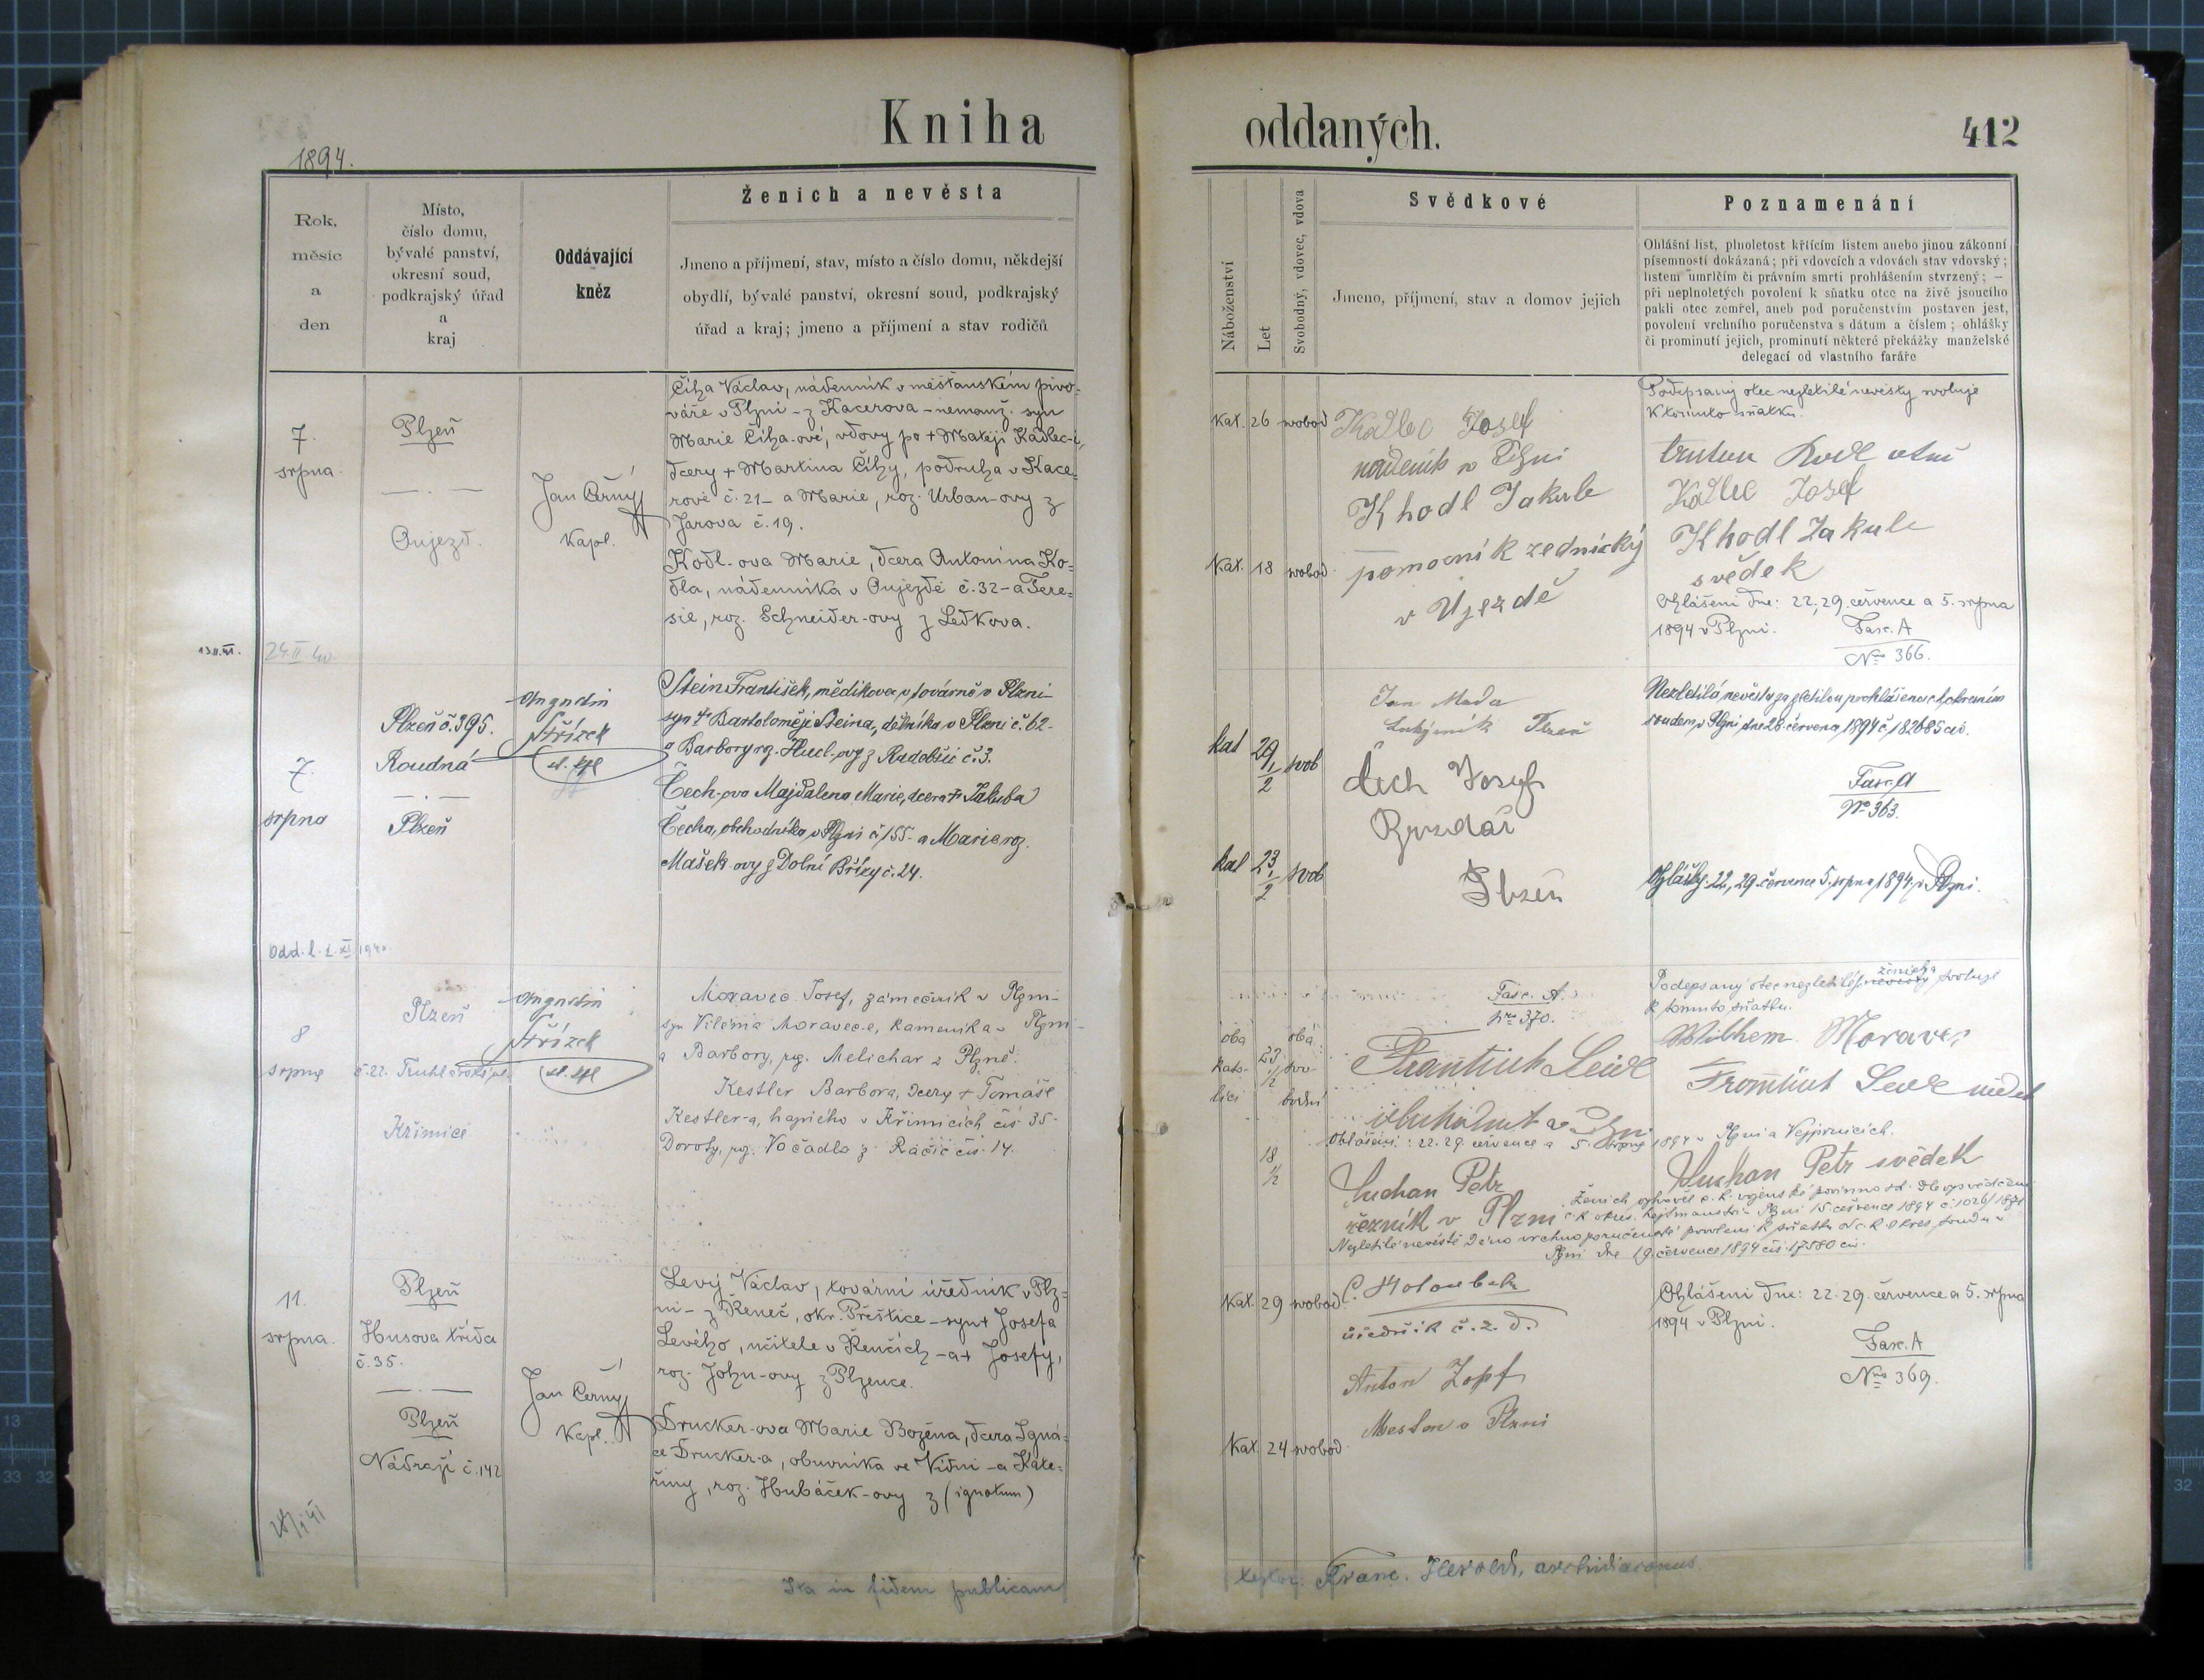 Kniha
oddaných.
412
1894.
Rok,
měsíc
a
den
Místo,
číslo domu,
bývalé panství,
okresní soud,
podkrajský úřad
a
kraj
Oddávající
kněz
Ženich a nevěsta
Jmeno a příjmení, stav, místo a číslo domu, někdejší
obydlí, bývalé panství, okresní soud, podkrajský
úřad a kraj; jmeno a příjmení a stav rodičů
Náboženství
Let
Svobodný, vdovec, vdova
Svědkové
Jmeno, příjmení, stav a domov jejich
Poznamenání
Ohlášní list, plnoletost křticím listem anebo jinou zákonní
písemností dokázaná; při vdovcích a vdovách stav vdovský;
listem úmrlčím či právním smrti prohlášením stvrzený; —
při neplnoletých povolení k sňatku otce na živě jsoucího
pakli otec zemřel, aneb pod poručenstvím postaven jest,
povolení vrchního poručenstva s dátum a číslem; ohlášky
či prominutí jejich, prominutí některé překážky manželské
delegací od vlastního faráře
7.
srpna
Plzeň
Oujezd.
Jan Černý
kapl.
Číha Václav, nádenník v měšťanském pivo-
váře v Plzni - z Kacerova - nemanž. syn
Marie Číha-ové, vdovy po + Matěji Kadlec-i,
dcery + Martina Číhy, podruha v Kace-
rově č. 21 - a Marie, roz. Urban-ovy z
Jarova č. 19.
Kodl-ova Marie, dcera Antonína Ko-
dla, nádenníka v Oujezdě č. 32 - a Tere-
sie, roz. Schneider-ovy z Ledkova.
13.II.41.
24.II.40
Kat. 26 svobod
Kat. 18 svobod
Kadlec Josef
nádeník v Plzni
Khodl Jakub
pomocník zednický
v Újezdě
Podepsaný otec nezletilé nevěsty svoluje
k tomuto sňatku.
Kodl
Kadlec Josef
Khodl Jakub
svědek
Ohlášeni dne: 22., 29. července a 5. srpna
1894 v Plzni.
Fasc. A
No 366.
7.
srpna
Plzeň č. 395.
Roudná
Plzeň
Augustin
Střízek
Stein František, mědikovec v továrně v Plzni -
syn + Bartoloměje Steina, dělníka v Plzni č. 62 -
a Barbory roz. Hucl-ovy z Radobšic č. 3.
Čech-ova Majdalena Marie, dcera + Jakuba
Čecha, obchodníka v Plzni č 155 - a Marie roz.
Mašek-ovy z Dolní Břízy č. 24.
Odd. l. 2. XI 1940.
kat 29 1/2 svob
kat 23 1/2 svob
Jan
Plzeň
Čech Josef
Plzeň
Nezletilá nevěsta za zletilou prohlášena c.k. okresním
soudem v Plzni dne 28. června 1894 č. 18268 civ.
Fasc. A
No 363.
Ohlášky: 22., 29. července 5. srpna 1894 v Plzni.
8
srpna
Plzeň
č. 22. Truhlářská ul.
Křimice
Augustin
Střízek
Moravec Josef, zámečník v Plzni -
syn Viléma Moravec-e, kameníka v Plzni -
a Barbory, roz. Melichar z Plzně.
Kestler Barbora, dcera + Tomáše
Kestler-a, hajného v Křimicích čís 35 -
Doroty, roz. Vočadlo z Račic čís. 14.
oba
kato-
líci
23 1/2
18 1/2
oba
svo-
bodni
Fasc. A.
No 370.
František Seidl
Ohlášeni: 22. 29. července a 5. srpna 1894 v Plzni a Vejprnicích.
Suchan Petr
řezník v Plzni
Podepsaný otec nezletilého nevěsty ženicha svoluje
k tomuto sňatku.
Wilhem Moravec
František Seidl
Suchan Petr svědek
Ženich vyhověl c. k. vojenské povinnosti dle vysvědčení
c. k. okres. hejtmanství v Plzni 15. července 1894 č.
Nezletilé nevěstě dáno vrchnoporučenské povolení k sňatku od c. k. okres. soudu v
Plzni dne 19. července 1894 čís. 17580 civ.
11.
srpna.
Plzeň
Husova třída
č. 35.
Plzeň
Nádraží č. 142
Jan Černý
kapl.
Levý Václav, tovární úředník v Plz-
ni - z Řeneč, okr. Přeštice - syn + Josefa
Levého, učitele v Řenčích - a + Josefy,
roz. John-ovy z Plzence.
Drucker-ova Marie Božena, dcera Igná-
ce Drucker-a, obuvníka ve Vídni - a Kate-
řiny, roz. Hubáček-ovy z (ignotum)
Kat. 29 svobod.
Kat. 24 svobod.
C. Holoubek
úředník č. z. d.
Anton Zopf
v Plzni
Ohlášeni dne: 22. 29. července a 5. srpna
1894 v Plzni.
Fasc. A
No 369.
Ita in fidem publicam
testor: Franc. Herold, archidiaconus.